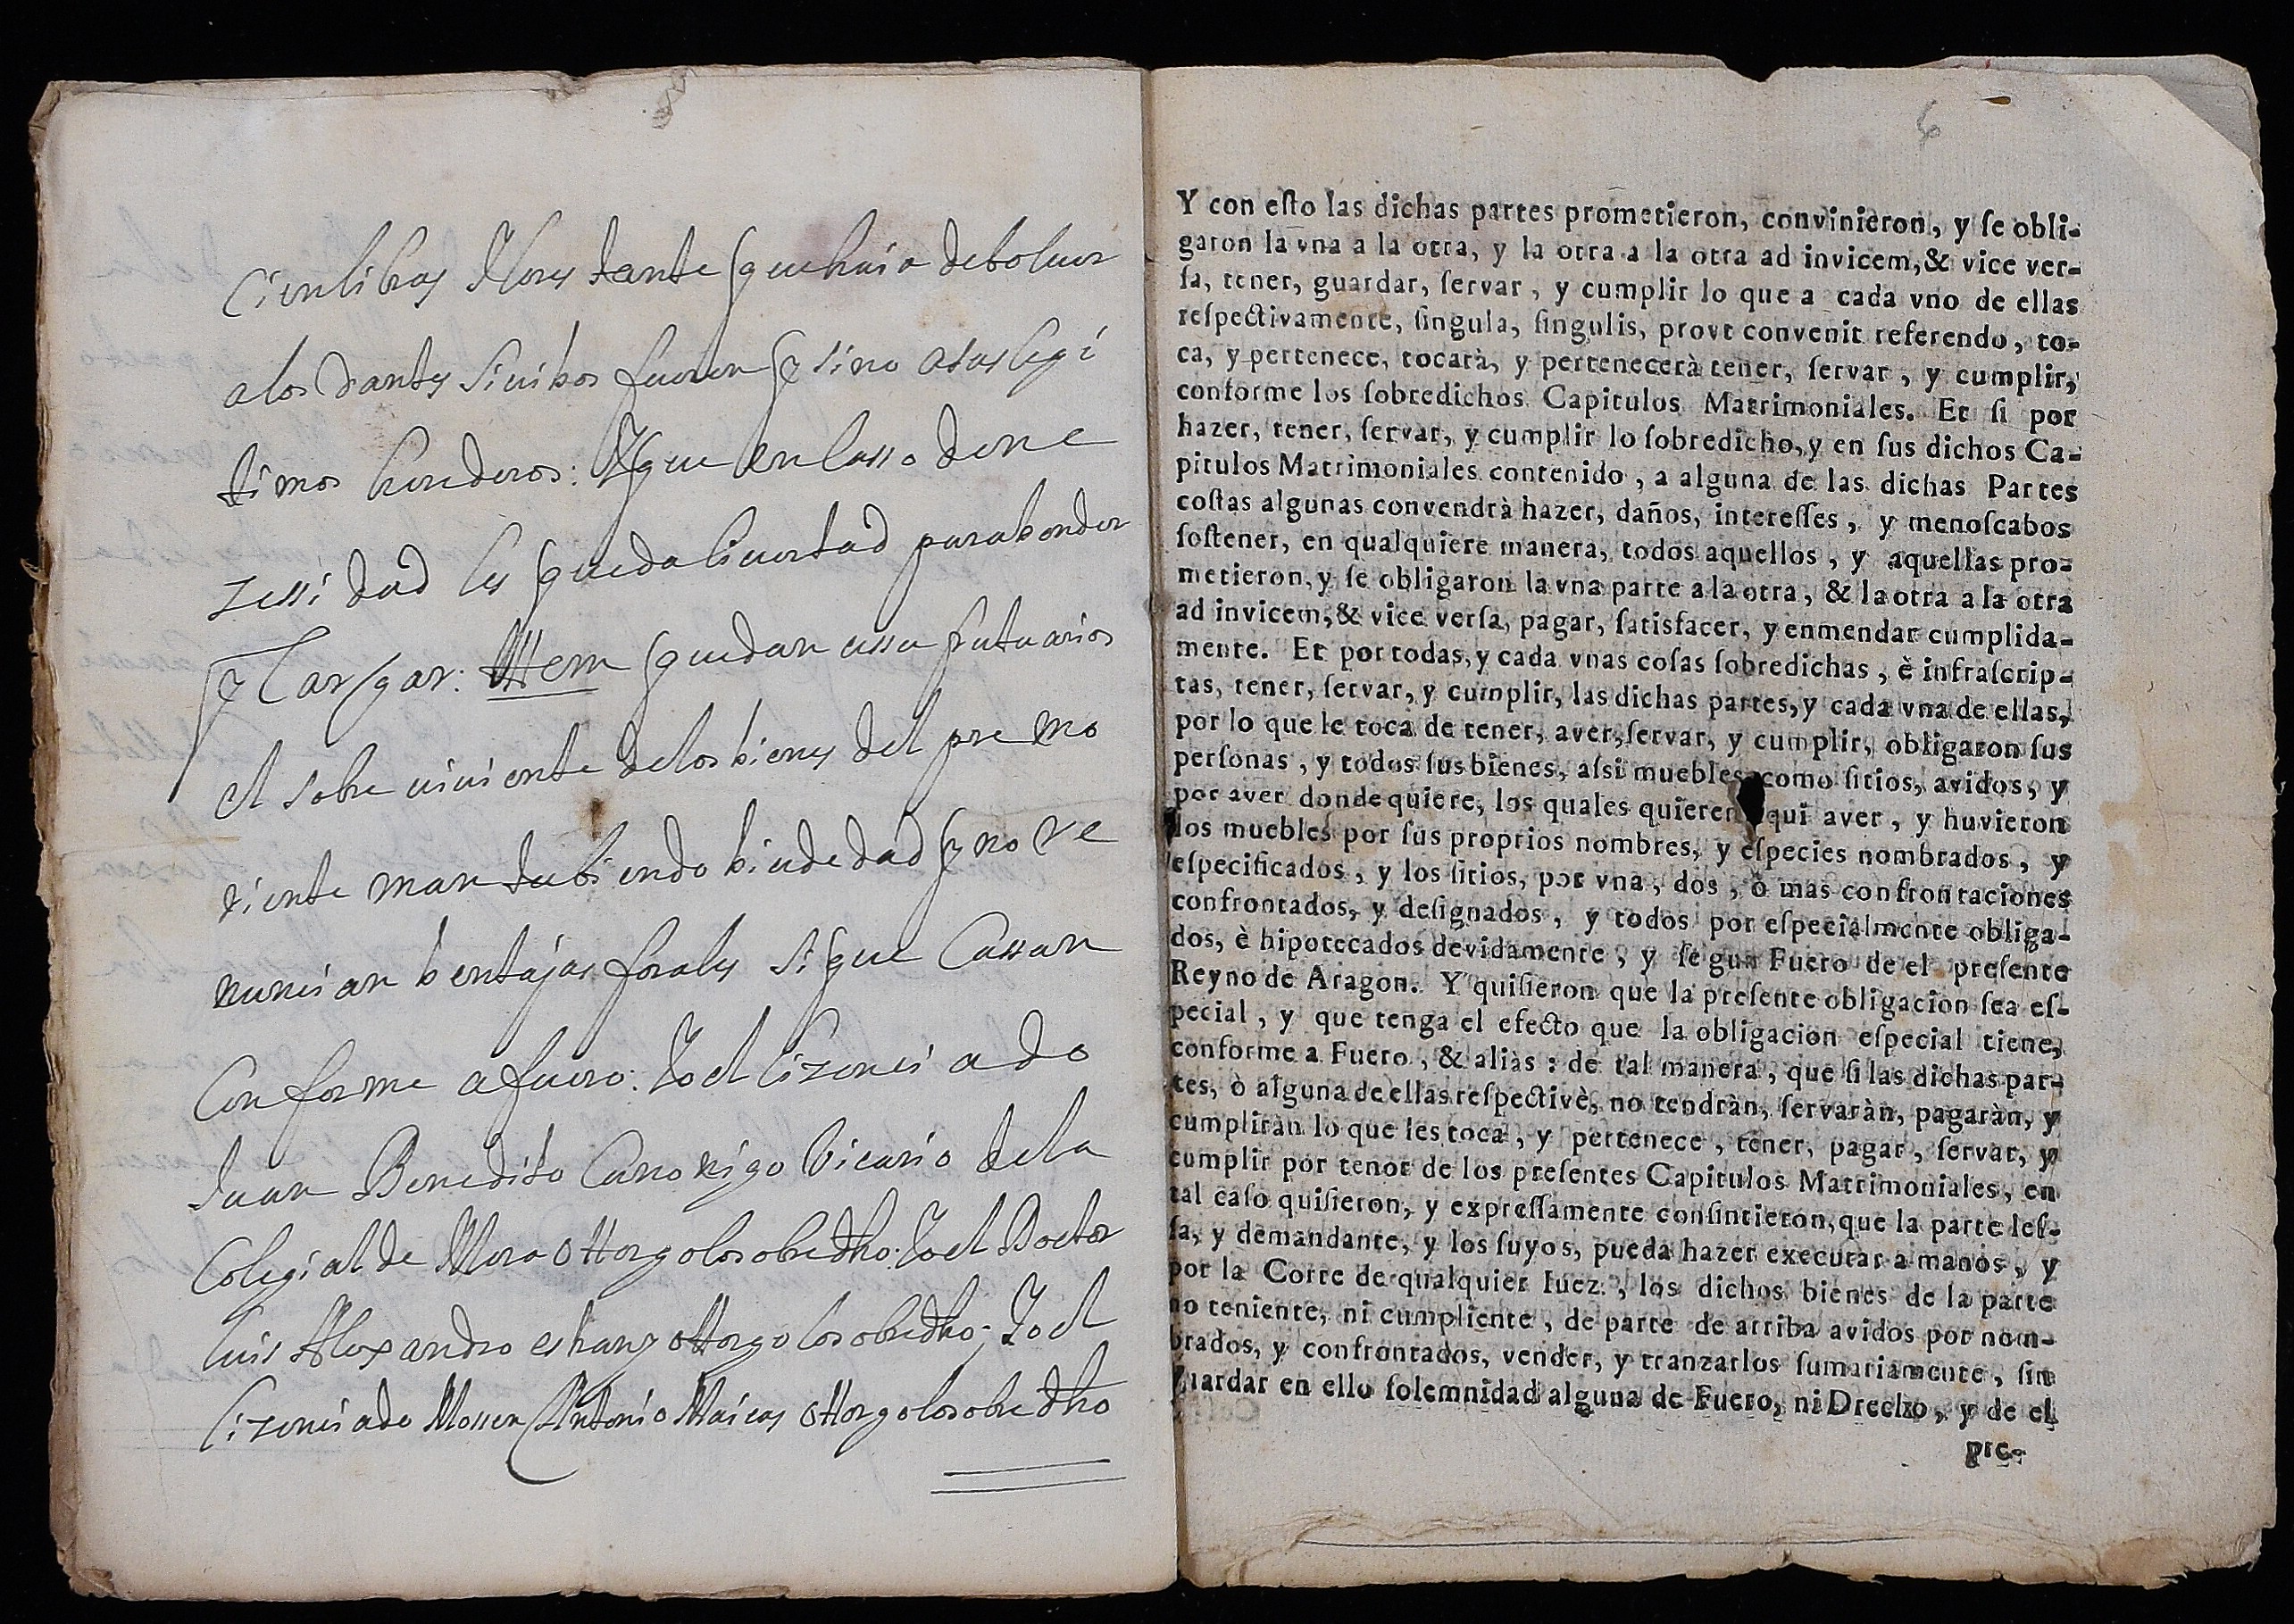 Cien libras Y lo restante que haia deboluer
a los dantes si uibos fueren y sino a sus legi
timos herederos: Y que en casso de ne
zessidad les queda libertad para bender
y Cargar: Ittem quedan ussufrutuarios
el sobreuiuiente de los bienes del premo
riente mantubiendo biudedad y no re
nuncian bentajas forales si que Cassan
Conforme a fuero: Yo el lizenciado
Juan Benedito Canonigo Vicario de la
Colegial de Mora ottorgo lo sobredho: Yo el Doctor
Luis Alexandro ottorgo lo sobredho: Yo el
lizenciado Mossen Antonio Maicas ottorgo lo sobredho
6
Y con eſto las dichas partes prometieron, convinieron, y ſe obli-
garon la vna a la otra, y la otra a la otra ad invicem, & vice ver-
ſa, tener, guardar, ſervar, y cumplir lo que a cada vno de ellas
reſpectivamente, ſingula, ſingulis, provt convenit referendo, to-
ca, y pertenece, tocarà, y pertenecerà tener, ſervar, y cumplir,
conforme los ſobredichos Capitulos Matrimoniales. Et ſi por
hazer, tener, ſervar, y cumplir lo ſobredicho, y en ſus dichos Ca-
pitulos Matrimoniales contenido, a alguna de las dichas Partes
coſtas algunas convendrà hazer, daños, intereſſes, y menoſcabos
ſoſtener, en qualquiere manera, todos aquellos, y aquellas pro-
metieron, y ſe obligaron la vna parte a la otra, & la otra a la otra
ad invicem, & vice verſa, pagar, ſatisfacer, y enmendar cumplida-
mente. Et por todas, y cada vnas coſas ſobredichas, è infraſcrip-
tas, tener, ſervar, y cumplir, las dichas partes, y cada vna de ellas,
por lo que le toca de tener, aver, ſervar, y cumplir, obligaron ſus
perſonas, y todos ſus bienes, aſsi muebles, como ſitios, avidos, y
por aver donde quiere, los quales quieren aqui aver, y huvieron
los muebles por ſus proprios nombres, y eſpecies nombrados, y
eſpecificados, y los ſitios, por vna, dos, ò mas confrontaciones
confrontados, y deſignados, y todos por eſpecialmente obliga-
dos, è hipotecados devidamente, y ſegun Fuero de el preſente
Reyno de Aragon. Y quiſieron que la preſente obligacion ſea eſ-
pecial, y que tenga el efecto que la obligacion eſpecial tiene,
conforme a Fuero, & aliàs: de tal manera, que ſi las dichas par-
tes, ò alguna de ellas reſpectivè, no tendràn, ſervaràn, pagaràn, y
cumpliràn lo que les toca, y pertenece, tener, pagar, ſervar, y
cumplir por tenor de los preſentes Capitulos Matrimoniales, en
tal caſo quiſieron, y expreſſamente conſintieron, que la parte leſ-
ſa, y demandante, y los ſuyos, pueda hazer executar a manos, y
por la Corte de qualquier Iuez, los dichos bienes de la parte
no teniente, ni cumpliente, de parte de arriba avidos por nom-
brados, y confrontados, vender, y tranzarlos ſumariamente, ſin
guardar en ello ſolemnidad alguna de Fuero, ni Drecho, y de el
pre-